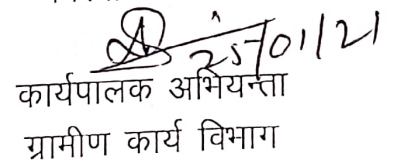 25/01/21
कार्यपालक अभियन्ता
ग्रामीण कार्य विभाग